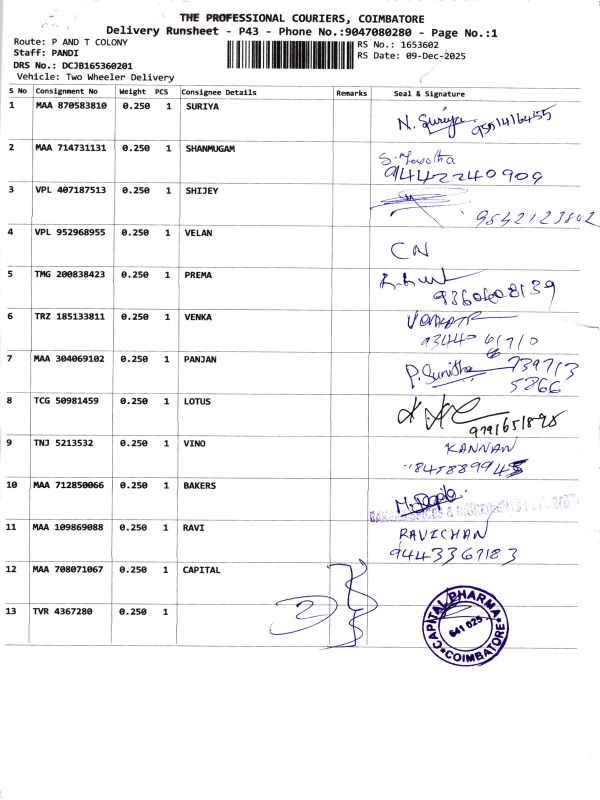 THE PROFESSIONAL COURIERS, COIMBATORE
Delivery Runsheet - P43 - Phone No.:9047080280 - Page No.:1
Route: P AND T COLONY
Staff: PANDI
DRS No.: DCJB165360201
Vehicle: Two Wheeler Delivery
RS No.: 1653602
RS Date: 09-Dec-2025
S No Consignment No Weight PCS Consignee Details Remarks Seal & Signature
1 MAA 870583810 0.250 1 SURIYA N. Suriya
2 MAA 714731131 0.250 1 SHANMUGAM
9442240909
3 VPL 407187513 0.250 1 SHIJEY
9842123802
4 VPL 952968955 0.250 1 VELAN CN
5 TMG 200838423 0.250 1 PREMA
6 TRZ 185133811 0.250 1 VENKA
7 MAA 304069102 0.250 1 PANJAN P. Sunitha 739713
5266
8 TCG 50981459 0.250 1 LOTUS
9791651898
9 TNJ 5213532 0.250 1 VINO KANNAN
10 MAA 712850066 0.250 1 BAKERS
11 MAA 109869088 0.250 1 RAVI RAVICHAN
9443367183
12 MAA 708071067 0.250 1 CAPITAL
13 TVR 4367280 0.250 1 2
CAPITAL PHARMA
641 025
COIMBATORE